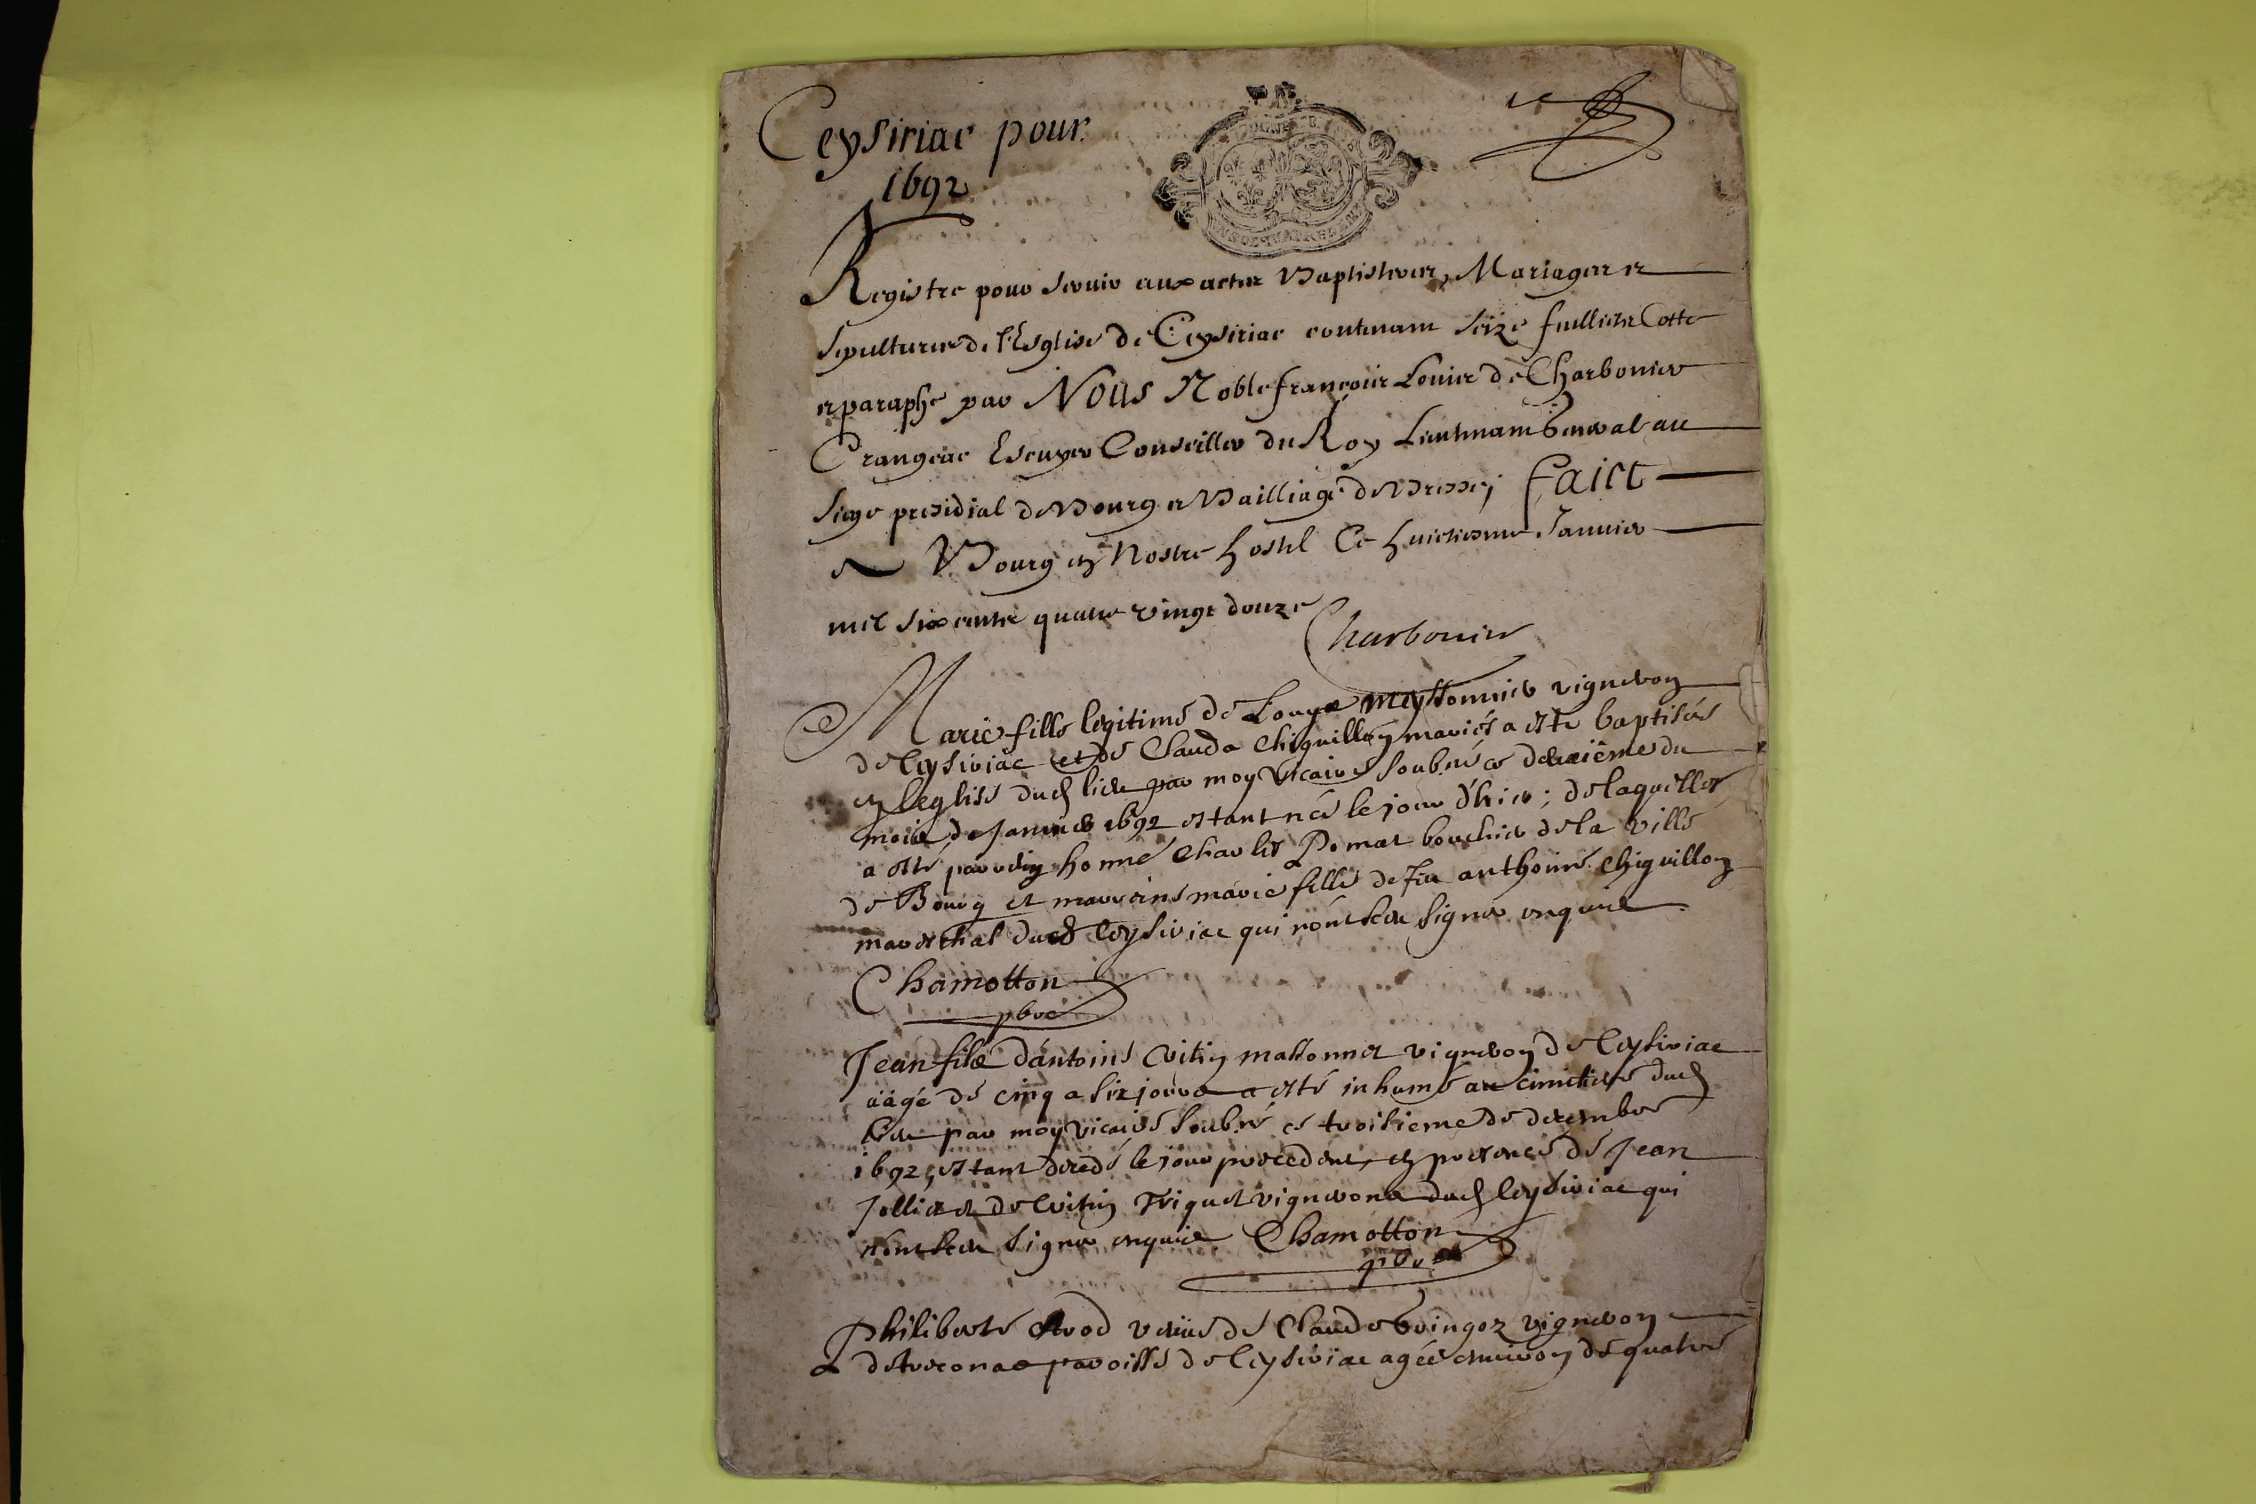 Ceysiriac pour
1692
Registre pour servir aux actes Baptistaires, Mariages et
sepultures de l'Esglise de Ceysiriac contenant seize fuillietz Cotte
et paraphe par NOUS Noble françois Louis de Charbonier
Crangeac Escuyer Conseiller du Roy Lieutenant General au
siege presidial de Bourg et Bailliage de Bresse; FAICT
A Bourg en Nostre hostel Ce huictiesme Janvier
mil six cents quatre vingt douze
Charbonier
Marie fille legitime de Louys Meyssonnier vigneron
de Ceysiriac et de Clauda Chiquillon mariés a esté baptisée
en leglise dud lieu par moy vicaire soubné ce deuxième du
mois de Janvier 1692 estant née le jour d'hier; de laquelle
a esté parrein honné Charles Pomat bouchier de la ville
de Bourg et marreine marie fille de feu anthoine Chiquillon
mareschal dud Ceysiriac qui n'ont sceu signer enquis
Chamotton
pbre
Jean fils d'antoine vitin massonnet vigneron de Ceysiriac
aagé de cinq a six jours a esté inhumé au cimetiere dud
lieu par moy vicaire soubné ce troisieme de decembre
1692, estant decedé le jour precedent, en presence de Jean
Jolliet et de vitin Triquet vignerons dud Ceysiriac qui
n'ont sceu signer enquis Chamotton
pbre
Philiberte veuve de Claude vigneron
paroisse de Ceysiriac agée environ de quatre